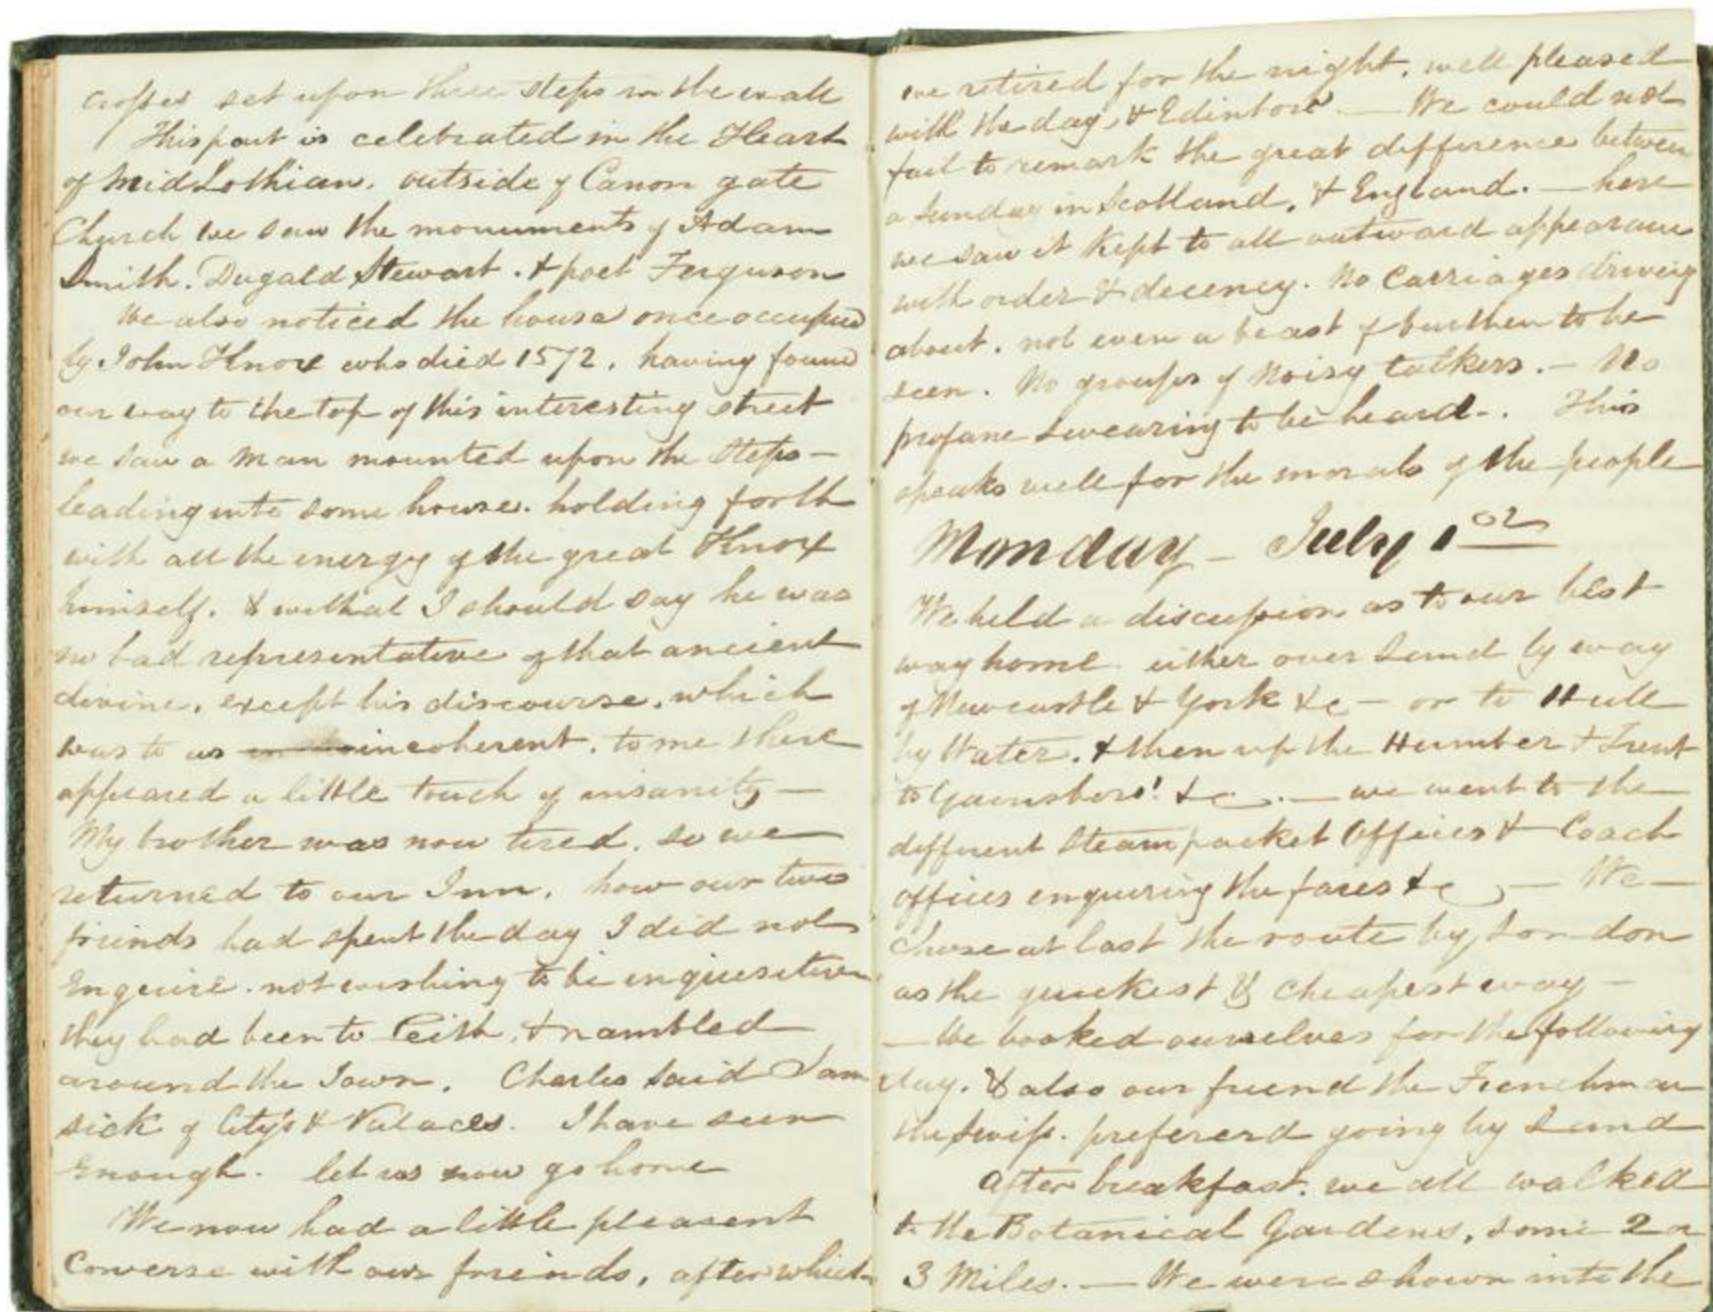 crosses set upon three steps in the wall
This part is celebrated in the Heart
of Mid Lothian. outside of Canon gate
Church we saw the monuments of Adam
Smith. Dugald Stewart. & poet Ferguson
We also noticed the house once occupied
by John Knox who died 1572. having found
our way to the top of this interesting street
we saw a man mounted upon the steps –
leading into some house. holding forth
with all the energy of the great Knox
himself. & withal I should say he was
no bad representative of that ancient
divine. except his discourse. which
was to us incoherent. to me there
appeared a little touch of insanity –
My brother was now tired. so we
returned to our Inn. how our two
friends had spent the day I did not
Enquire. not wishing to be inquisitive
they had been to Leith, & rambled
around the Town. Charles said I am
sick of City's & Palaces. I have seen
Enough. let us now go home
We now had a little pleasent
Converse with our friends, after which
we retired for the night. well pleased
with the day, & Edinboro'. — We could not
fail to remark the great difference between
a Sunday in Scotland, & England. — here
we saw it Kept to all outward appearance
with order & decency. No Carriages driving
about. not even a beast of burthen to be
seen. No groups of Noisy talkers. – No
profane swearing to be heard –. This
speaks well for the morals of the people
Monday – July 1st
We held a discussion as to our best
way home. either over Land by way
of Newcastle & York &c – or to Hull
by Water. & then up the Humber & Trent
to Gainsboro'! &c. — we went to the
different Steam packet Offices & Coach
offices enquiring the fares &c — We —
chose at last the route by London
as the quickest & cheapest way –
— We booked ourselves for the following
day. & also our friend the Frenchman
the Swiss. prefererd going by Land
After breakfast. we all walked
to the Botanical Gardens, some 2 or
3 Miles. — We were shown into the